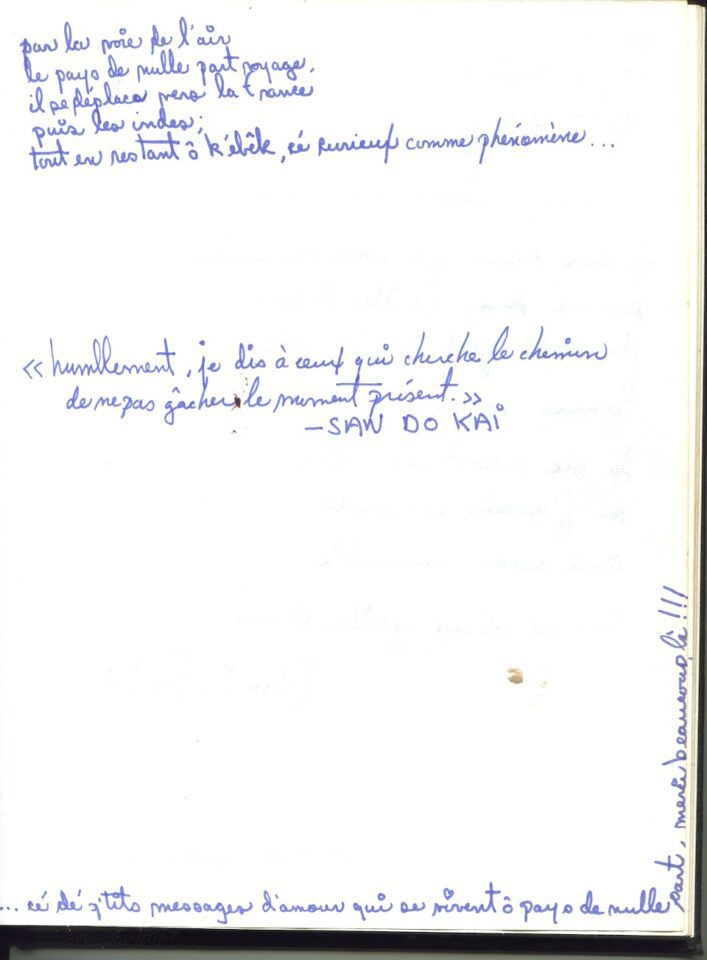 par la voie de l'air
le pays de nulle part voyage,
il se déplace vers la france
puis les indes;
tout en restant ô k'ébèk, cé curieux comme phénomène...
«humblement, je dis à ceux qui cherche le chemin
de ne pas gâcher le moment présent.»
-SAN DO KAI
... cé dé p'tits messages d'amour qui se vivent ô pays de nulle
part, merci beaucoup, là!!!